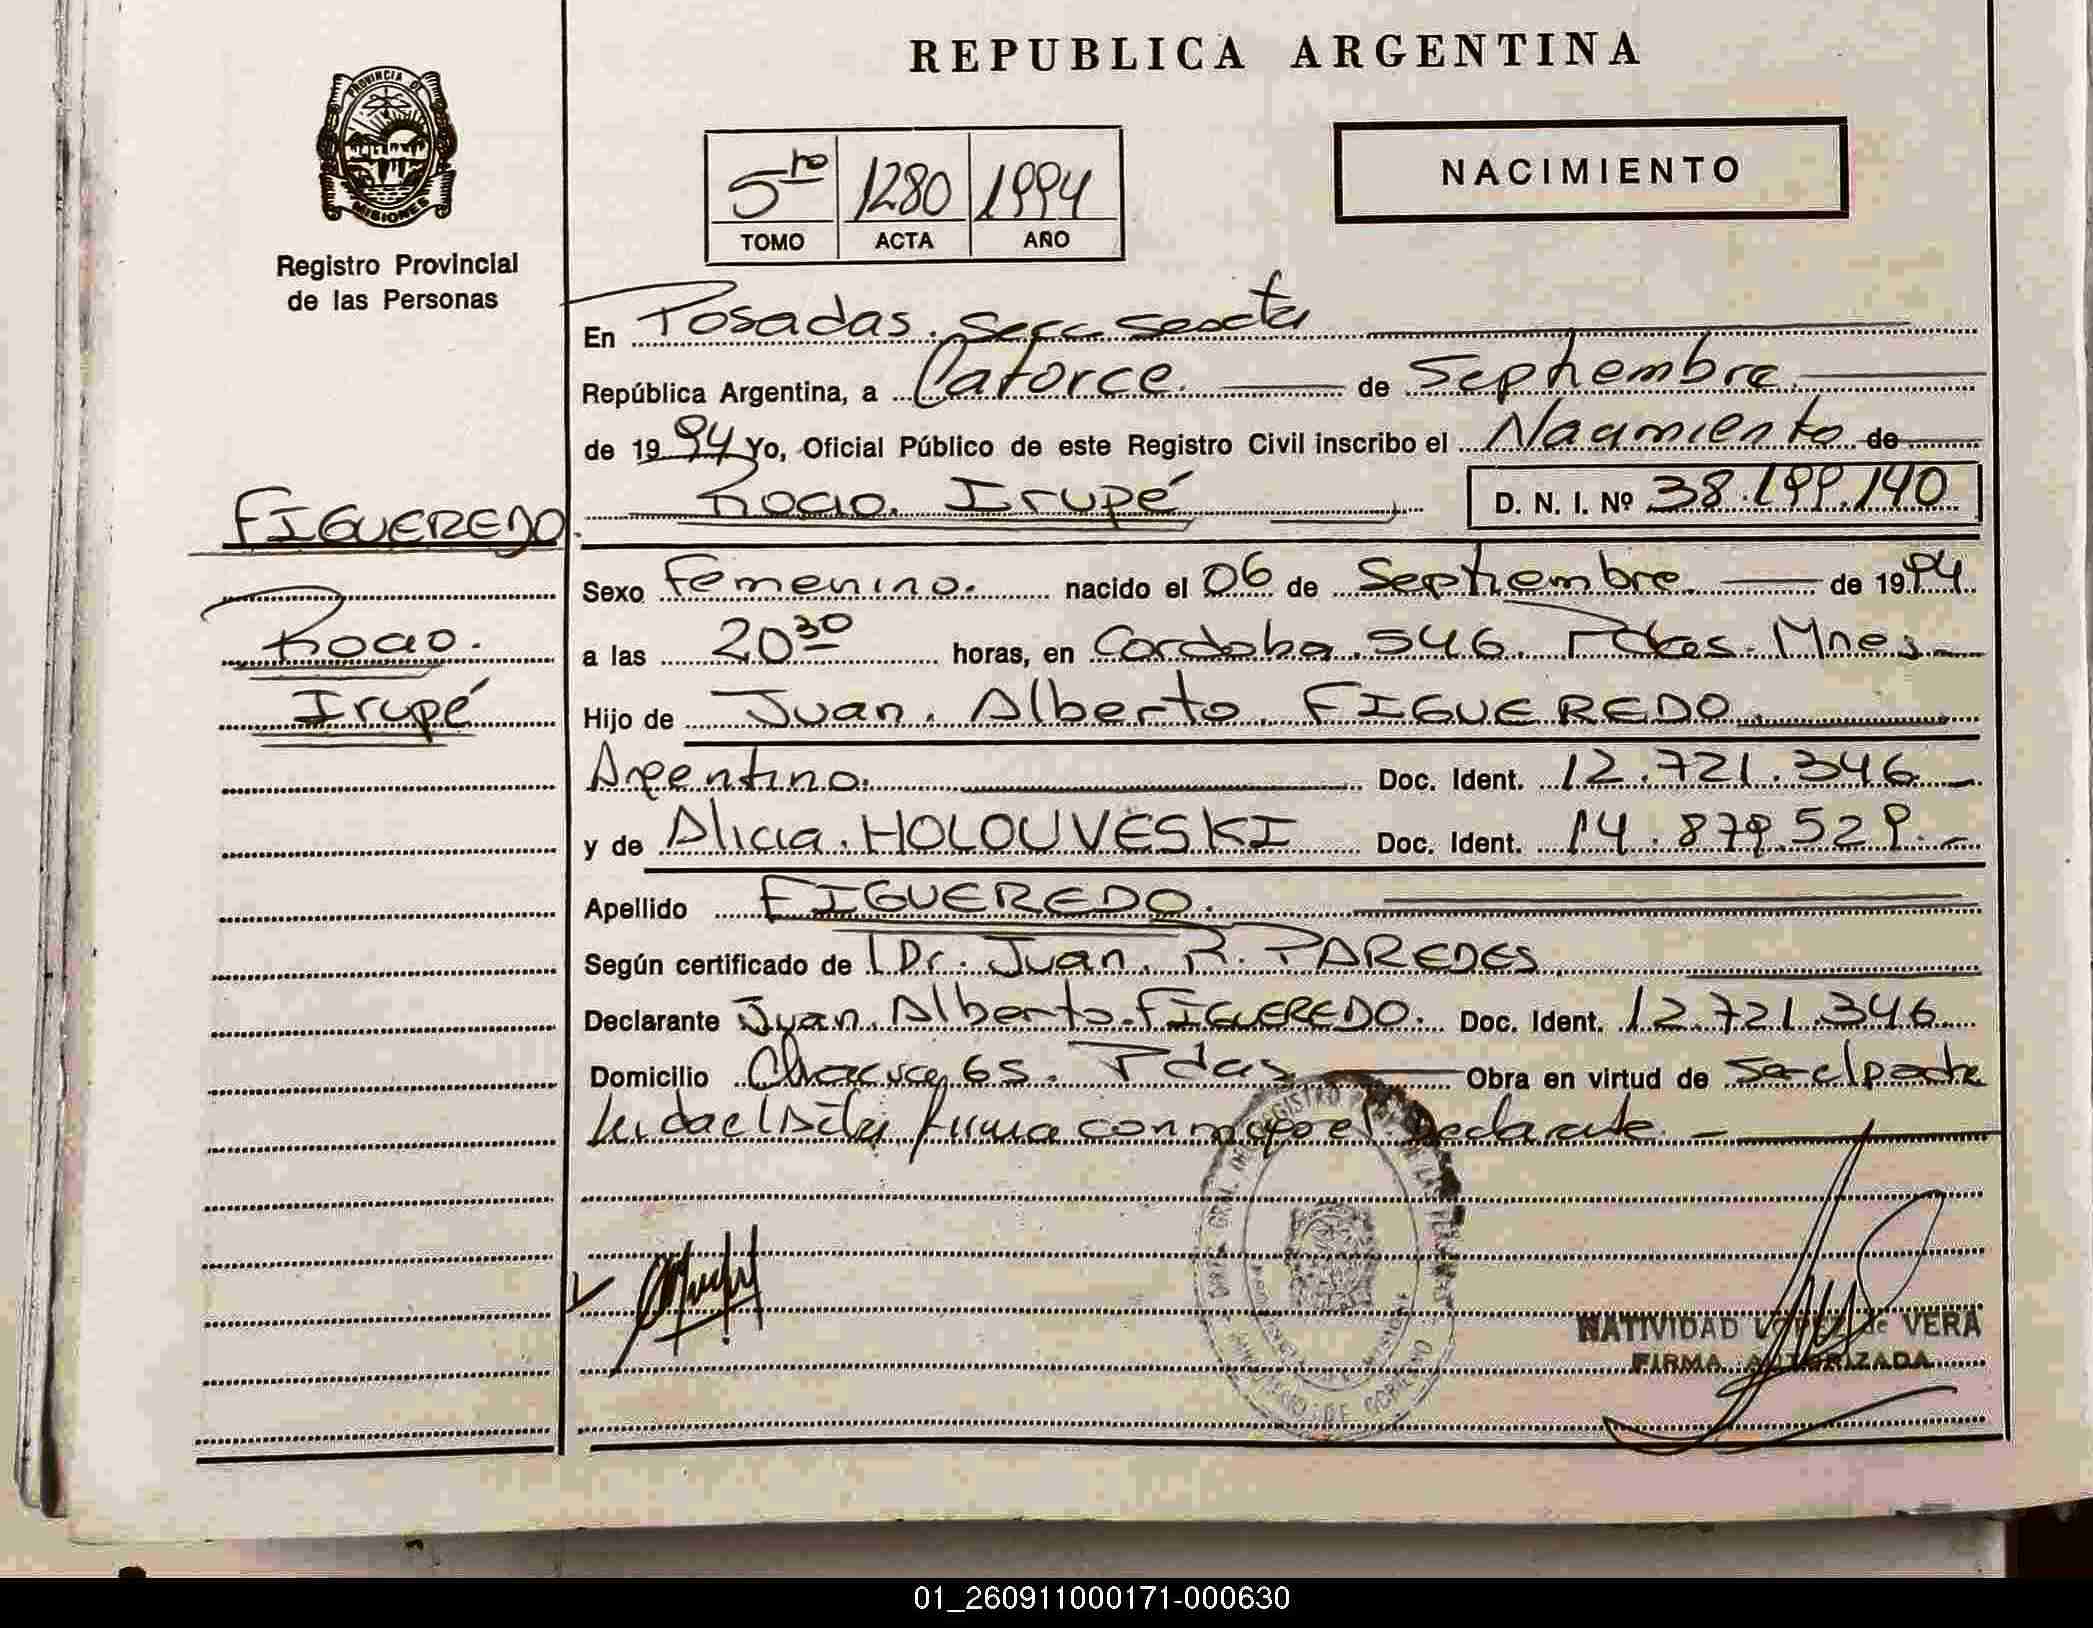 REPUBLICA ARGENTINA
PROVINCIA DE
MISIONES
Registro Provincial
de las Personas
5to 1280 1994
TOMO ACTA AÑO
NACIMIENTO
En Posadas. Secc. Sexta
República Argentina, a Catorce. de Septiembre.
de 1994 Yo, Oficial Público de este Registro Civil inscribo el Nacimiento de
Rocio. Irupé D. N. I. Nº 38.199.140
FIGUEREDO.
Rocio.
Irupé
Sexo Femenino. nacido el 06 de Septiembre. de 1994.
a las 20 30 horas, en Cordoba. 546. Pdas. Mnes.
Hijo de Juan. Alberto FIGUEREDO
Argentino. Doc. Ident. 12.721.346.
y de Alicia. HOLOUVESKI Doc. Ident. 14.879.529.
Apellido FIGUEREDO.
Según certificado de Dr. Juan. R. PAREDES
Declarante Juan. Alberto. FIGUEREDO. Doc. Ident. 12.721.346
Domicilio Chacra 65. Pdas Obra en virtud de
Leida el Acta firma conmigo el Declarante.
NATIVIDAD LOPEZ de VERA
FIRMA AUTORIZADA
01_260911000171-000630